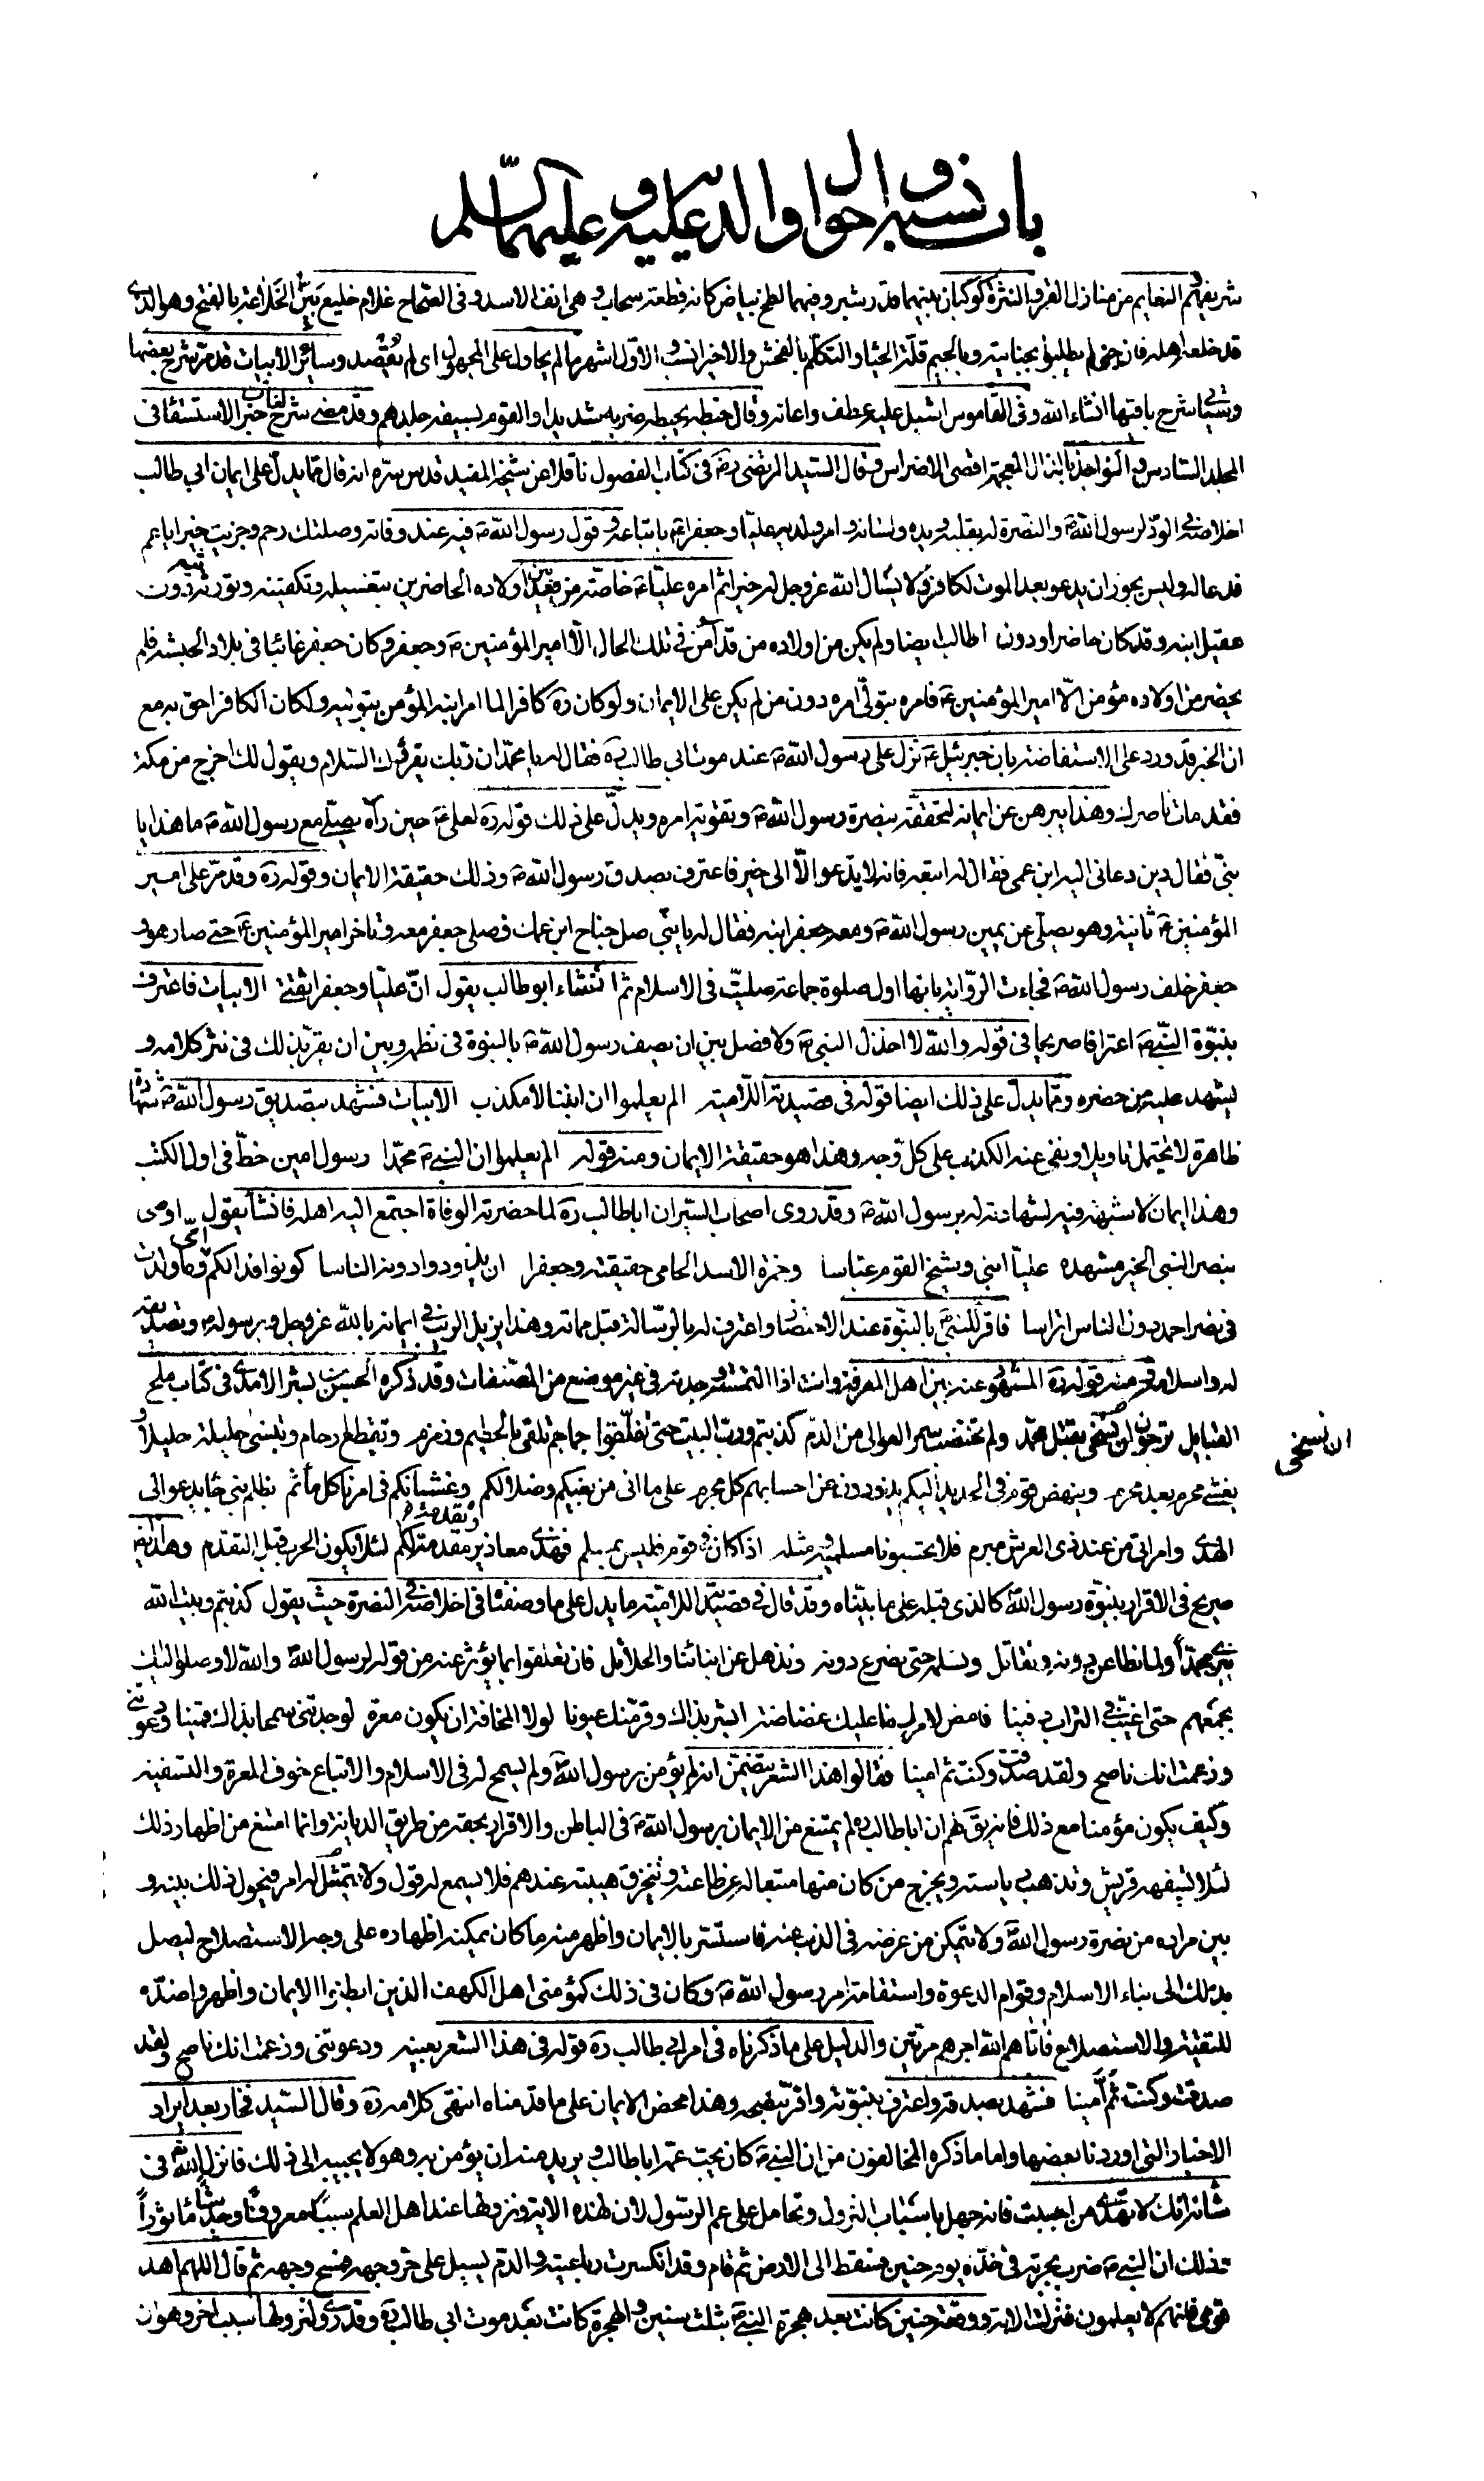 باب نسبه و احوال والديه عليه و عليهما السلم
شريفهم النعايم من منازل القمر و النثرة كوكبان بينهما قدر شبر و فيهما لطخ بياض كانه قطعة سحاب و هى انف الاسد و فى الصحاح غلام خليع بيّن الخلاعة بالفتح و هو الذى
قد خلعه اهله فان جنى لم يطلبوا بجنايته و بالجيم قلّة الحياء و التكلّم بالفحش و الاخير انسب و الاوّل اشهر ما لم يحاول على المجهول اى لم يقصد و سائر الابيات قد مرّ شرح بعضها
و سيأتى شرح باقيها انشاء الله و فى القاموس اشبل عليه عطف و اعانه و قال خبطه يخبطه ضربه شديدا و القوم بسيفه جلدهم و قد مضى شرح لغات خبر الاستسقاء فى
المجلد السادس و النواجذ بالذال المعجمة اقصى الاضراس و قال السيد المرتضى ره فى كتاب الفصول ناقلا عن شيخه المفيد قدس سره انه قال ممّا يدلّ على ايمان ابي طالب
اخلاصه فى الودّ لرسول الله ص و النصرة له بقلبه و يده و لسانه و امره ولديه عليّا و جعفرا ع باتباعه و قول رسول الله ص فيه عند وفاته وصلتك رحم و جزيت خيرا يا عم
فدعا له و ليس يجوز ان يدعو بعد الموت لكافر و لا يسأل الله عز و جل له خيرا ثم امره عليّا ع خاصّة من بين اولاده الحاضرين بتغسيله و تكفينه و توريته دون
عقيل ابنه و قد كان حاضرا و دون طالب ايضا و لم يكن من اولاده من قد آمن فى تلك الحال الّا امير المؤمنين ع و جعفر و كان جعفر غائبا فى بلاد الحبشة فلم
يحضر من اولاده مؤمن الّا امير المؤمنين ع فامره بتولّى امره دون من لم يكن على الايمان و لو كان ره كافرا لما امر ابنه المؤمن بتوليته و لكان الكافر احق به مع
ان الخبر قد ورد على الاستفاضة بان جبرئيل ع نزل على رسول الله ص عند موت ابي طالب ره فقال له يا محمّد ان ربّك يقرئك السلام و يقول لك اخرج من مكة
فقد مات ناصرك و هذا يبرهن عن ايمانه لتحققه بنصرة رسول الله ص و تقوية امره و يدلّ على ذلك قوله ره لعلى ع حين رآه يصلّى مع رسول الله ص ما هذا يا
بنىّ فقال دين دعانى اليه ابن عمى فقال له اتبعه فانه لا يدعو الّا الى خير فاعترف بصدق رسول الله ص و ذلك حقيقة الايمان و قوله ره و قد مرّ على امير
المؤمنين ع ثانية و هو يصلّى عن يمين رسول الله ص و معه جعفر ابنه فقال له يا بنىّ صل جناح ابن عمك فصلى جعفر معه و تاخر امير المؤمنين ع حتى صار هو و
جعفر خلف رسول الله ص فجاءت الرواية بانها اول صلوة جماعة صليت فى الاسلام ثم انشاء ابو طالب يقول انّ عليّا و جعفرا ثقتى الابيات فاعترف
بنبوّة النبى ص اعترافا صريحا فى قوله و الله لا اخذل النبي ص و لا فصل بين ان يصف رسول الله ص بالنبوة فى نظمه و بين ان يقر بذلك فى نثر كلامه و
يشهد عليه من حضره و ممّا يدلّ على ذلك ايضا قوله فى قصيدته اللامية الم يعلموا ان ابننا لا مكذب الابيات فشهد بتصديق رسول الله ص شهادة
ظاهرة لا تحتمل تاويلا و نفى عنه الكذب على كل وجه و هذا هو حقيقة الايمان و منه قوله الم يعلموا ان النبى ص محمّدا رسول امين خطّ فى اول الكتب
و هذا ايمان لا شبهة فيه لشهادته له برسول الله ص و قد روى اصحاب السير ان ابا طالب ره لما حضرته الوفاة اجتمع اليه اهله فانشأ يقول اوصى
بنصر النبى الخير مشهده عليّا ابنى و شيخ القوم عبّاسا و حمزة الاسد الحامى حقيقته و جعفرا ان يذودوا دونه الناسا كونوا فدا لكم امّى و ما ولدت
فى نصر احمد دون الناس اتراسا فاقر للنبى ص بالنبوّة عند الاحتضار و اعترف له بالرسالة قبل مماته و هذا يزيل الريب فى ايمانه بالله عز و جل و برسوله و بتصديقه
له و اسلامه و منه قوله ره المشهور عنه بين اهل المعرفة و انت اذا التمسته وجدته فى غير موضع من المصنفات و قد ذكره الحسن بن بشر الآمدى فى كتاب ملح
القبايل ترجون ان نسخى بقتل محمّد و لم تختضب سمر العوالى من الدم كذبتم و ربّ البيت حتى تفلّقوا جماجم تلقى بالحطيم و زمزم و تقطع ارحام و تنسى حليلة حليلا و
يغشى محرم بعد محرم و ينهض قوم فى الحديد اليكم يذودون عن احسابهم كل مجرم على ما اتى من بغيكم و ضلالكم و غشيانكم فى امرنا كل مأثم بظلم نبى جاء يدعو الى
الهدى و امر اتى من عند ذى العرش مبرم فلا تحسبونا مسلميه و مثله اذا كان فى قوم فليس بمسلم فهذى معاذير مقدمة لكم لئلا يكون الحرب قبل التقدم و هذا ايضا
صريح فى الاقرار بنبوّة رسول الله كالذى قبله على ما بيّناه و قد قال فى قصيدته اللامية ما يدل على ما وصفناه فى اخلاصه فى النصرة حيث يقول كذبتم و بيت الله
نبزى محمّدا و لما نطاعن دونه و نقاتل و نسلمه حتى نصرع دونه و نذهل عن ابنائنا و الحلائل فان تعلقوا بما يؤثر عنه من قوله لرسول الله و الله لا وصلوا اليك
بجمعهم حتى اغيّب فى التراب دفينا فامض لامرك ما عليك غضاضة ابشر بذاك و قرّ منك عيونا لولا المخافة ان يكون معرة لوجدتنى سمحا بذاك مبينا و دعوتنى
و زعمت انك ناصح و لقد صدقت و كنت ثم امينا فقالوا هذا الشعر يتضمّن انه لم يؤمن برسول الله ص و لم يسمح له فى الاسلام و الاتباع خوف المعرة و التسفيه
و كيف يكون مؤمنا مع ذلك فانه يقال لهم ان ابا طالب ره لم يمتنع من الايمان برسول الله ص فى الباطن و الاقرار بحقه من طريق الديانة و انما امتنع من اظهار ذلك
لئلا تسفهه قريش و تذهب رياسته و يخرج من كان متبعا له عن طاعته و تنخرق هيبته عندهم فلا يسمع له قول و لا يتمثل له امر فيحول ذلك بينه و
بين مراده من نصرة رسول الله ص و لا يتمكن من غرضه فى الذب عنه فاستتر بالايمان و اظهر منه ما كان يمكنه اظهاره على وجه الاستصلاح ليصل
بذلك الى بناء الاسلام و قوام الدعوة و استقامة امر رسول الله ص و كان فى ذلك كمؤمنى اهل الكهف الذين ابطنوا الايمان و اظهروا ضدّه
للتقية و الاستصلاح فآتاهم الله اجرهم مرتين و الدليل على ما ذكرناه فى امر ابى طالب ره قوله فى هذا الشعر بعينه و دعوتنى و زعمت انك ناصح و لقد
صدقت و كنت ثم امينا فشهد بصدقه و اعترف بنبوّته و اقرّ بنصحه و هذا محض الايمان على ما قدمناه انتهى كلامه ره و قال السيد فخار بعد ايراد
الاخبار التى اوردنا بعضها و اما ما ذكره المخالفون من ان النبى ص كان يحب عمه ابا طالب و يريد منه ان يؤمن به و هو لا يجيبه الى ذلك فانزل الله تعالى فى
شأنه انك لا تهدى من احببت فانه جهل باسباب النزول و تحامل على عم الرسول لان لهذه الاية و نزولها عند اهل العلم سببا معروفا و حديثا مأثورا
ذلك ان النبى ص ضرب بحربة فى خدّه يوم حنين فسقط الى الارض ثم قام و قد انكسرت رباعيته و الدم يسيل على حر وجهه فمسح وجهه ثم قال اللهم اهد
قومى فانهم لا يعلمون فنزلت الاية و وقعة حنين كانت بعد هجرة النبى ص بثلث سنين و الهجرة كانت بعد موت ابى طالب ره و قد روى لنزولها سبب اخر و هو ان
ان نسخى